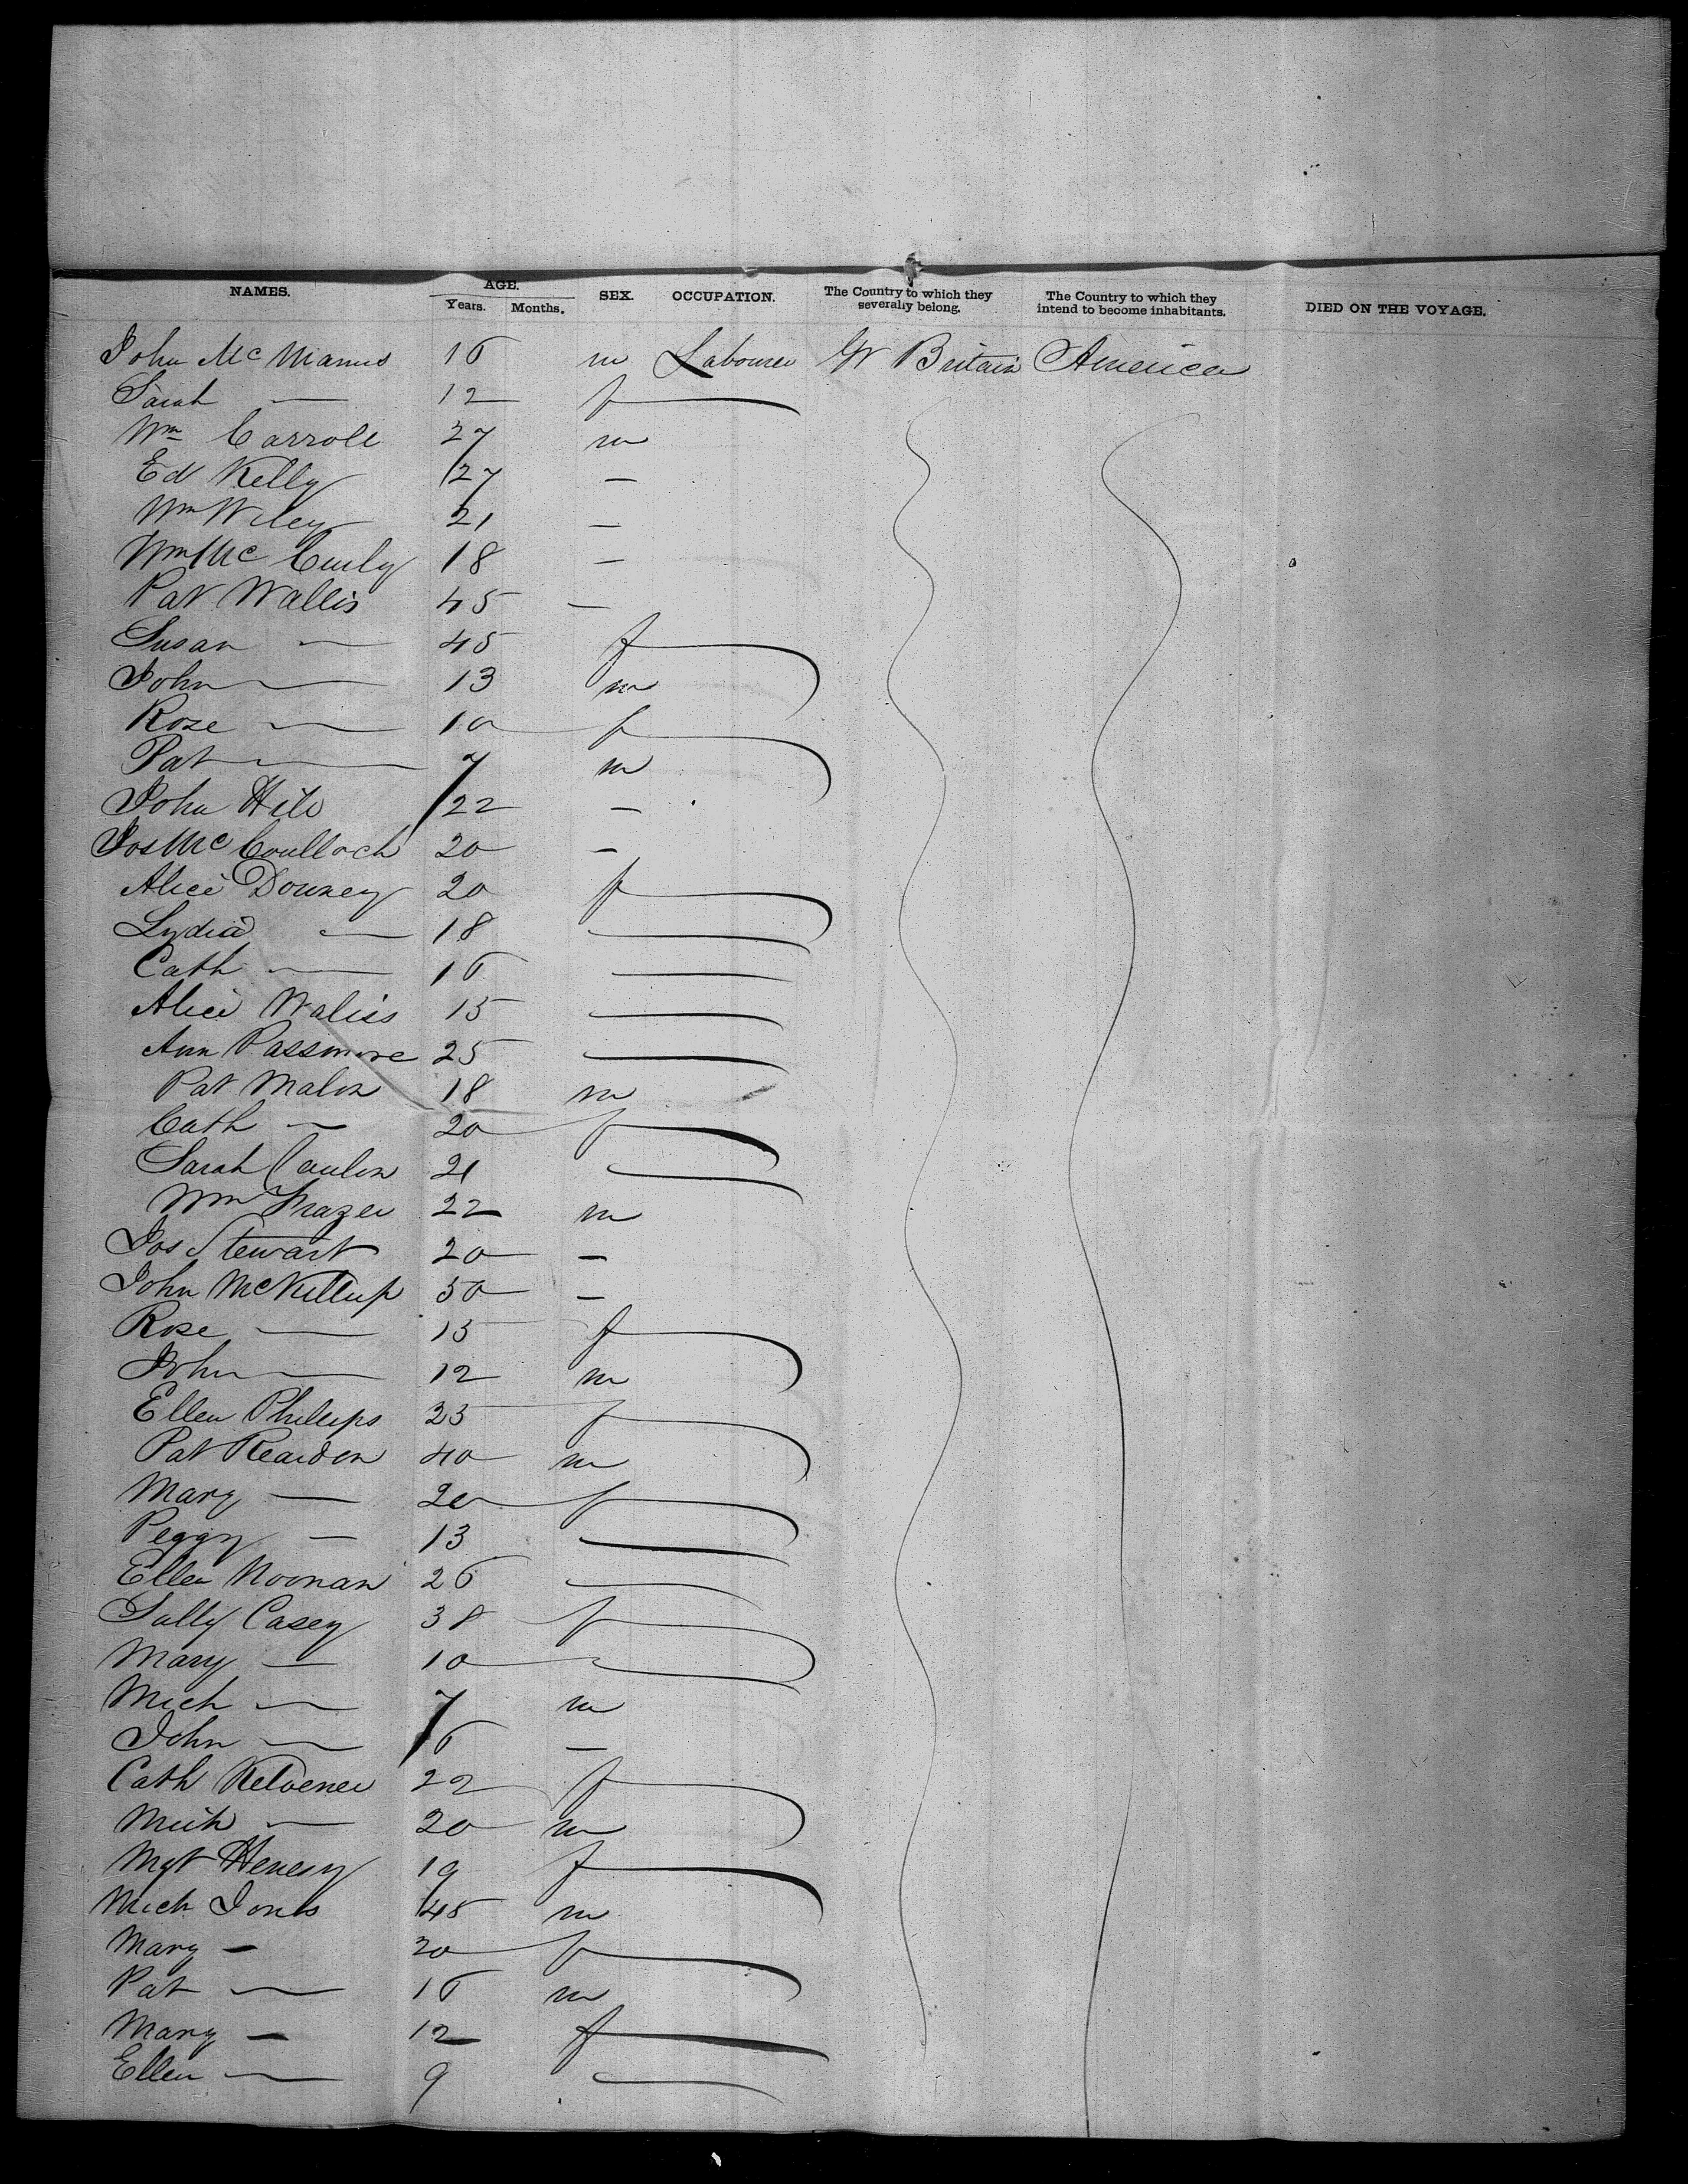 NAMES. AGE. SEX. OCCUPATION. The Country to which they severally belong. The Country to which they intend to become inhabitants. DIED ON THE VOYAGE.
Years. Months.
John McManus 16 m Labourer Gt Britain America
Sarah — 12 f
Wm Carroll 27 m
Ed Kelly 27 —
Wm Wiley 21 —
Wm Mc Curly 18 —
Pat Wallis 45 —
Susan — 45 f
John — 13 m
Rose — 10 f
Pat — 7 m
John 22 —
Jos McCoulloch 20 —
Alice Downey 20 f
Lydia — 18 —
Cath — 16 —
Alice Waliss 15 —
Ann Passmore 25 —
Pat Malon 18 m
Cath — 20 f
Sarah Caulon 21 —
Wm Frazer 22 m
Jos Stewart 20 —
John McKillup 50 —
Rose — 15 f
John — 12 m
Ellen Phillips 25 f
Pat Reardon 40 m
Mary — 20 f
Peggy — 13 —
Ellen Noonan 26 —
Sally Casey 38 f
Mary — 10 —
Mich — 7 m
John — 6 —
Cath 22 f
Mich — 20 m
Mgt Henesy 19 f
Mich Jones 45 m
Mary — 20 f
Pat — 16 m
Mary — 12 f
Ellen — 9 —